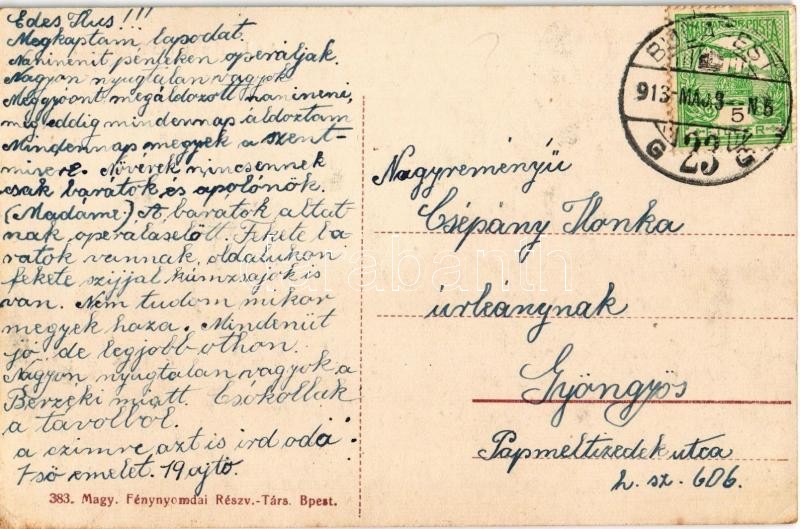 Edes Ilus!!!
Megkaptam lapodat.
Naninenit pénteken operáljak.
Nagyon nyugtalan vagyok
Meggyónt megáldozott naninenni,
meg eddig mindennap áldoztam
Mindennap megyek a szent-
misere. Nővérek nincsennek
csak barátok, és apolónök.
(Madáme.) A barátok altat
nak operalaselött. Fekete ba
ratok vannak, oldalukon
fekete szijjal
van. Nem tudom mikor
megyek haza. Mindenüt
jó, de legjobb othon.
Nagyon nyugtalan vagyok a
Berzeki miatt. Csókolluk
a távolból.
a czimre azt is ird oda:
1 sö emelet. 19 ajtó.
383. Magy. Fénynyomdai Részv.-Társ. Bpest.
MAGYAR KIR. POSTA
5
BUDAPEST
913 MÁJ. 8 - N. 5
23
Nagyreményü
Csépány Ilonka
úrleánynak
Gyöngyös
Papmeltizedek utca
h. sz. 606.
Darabanth